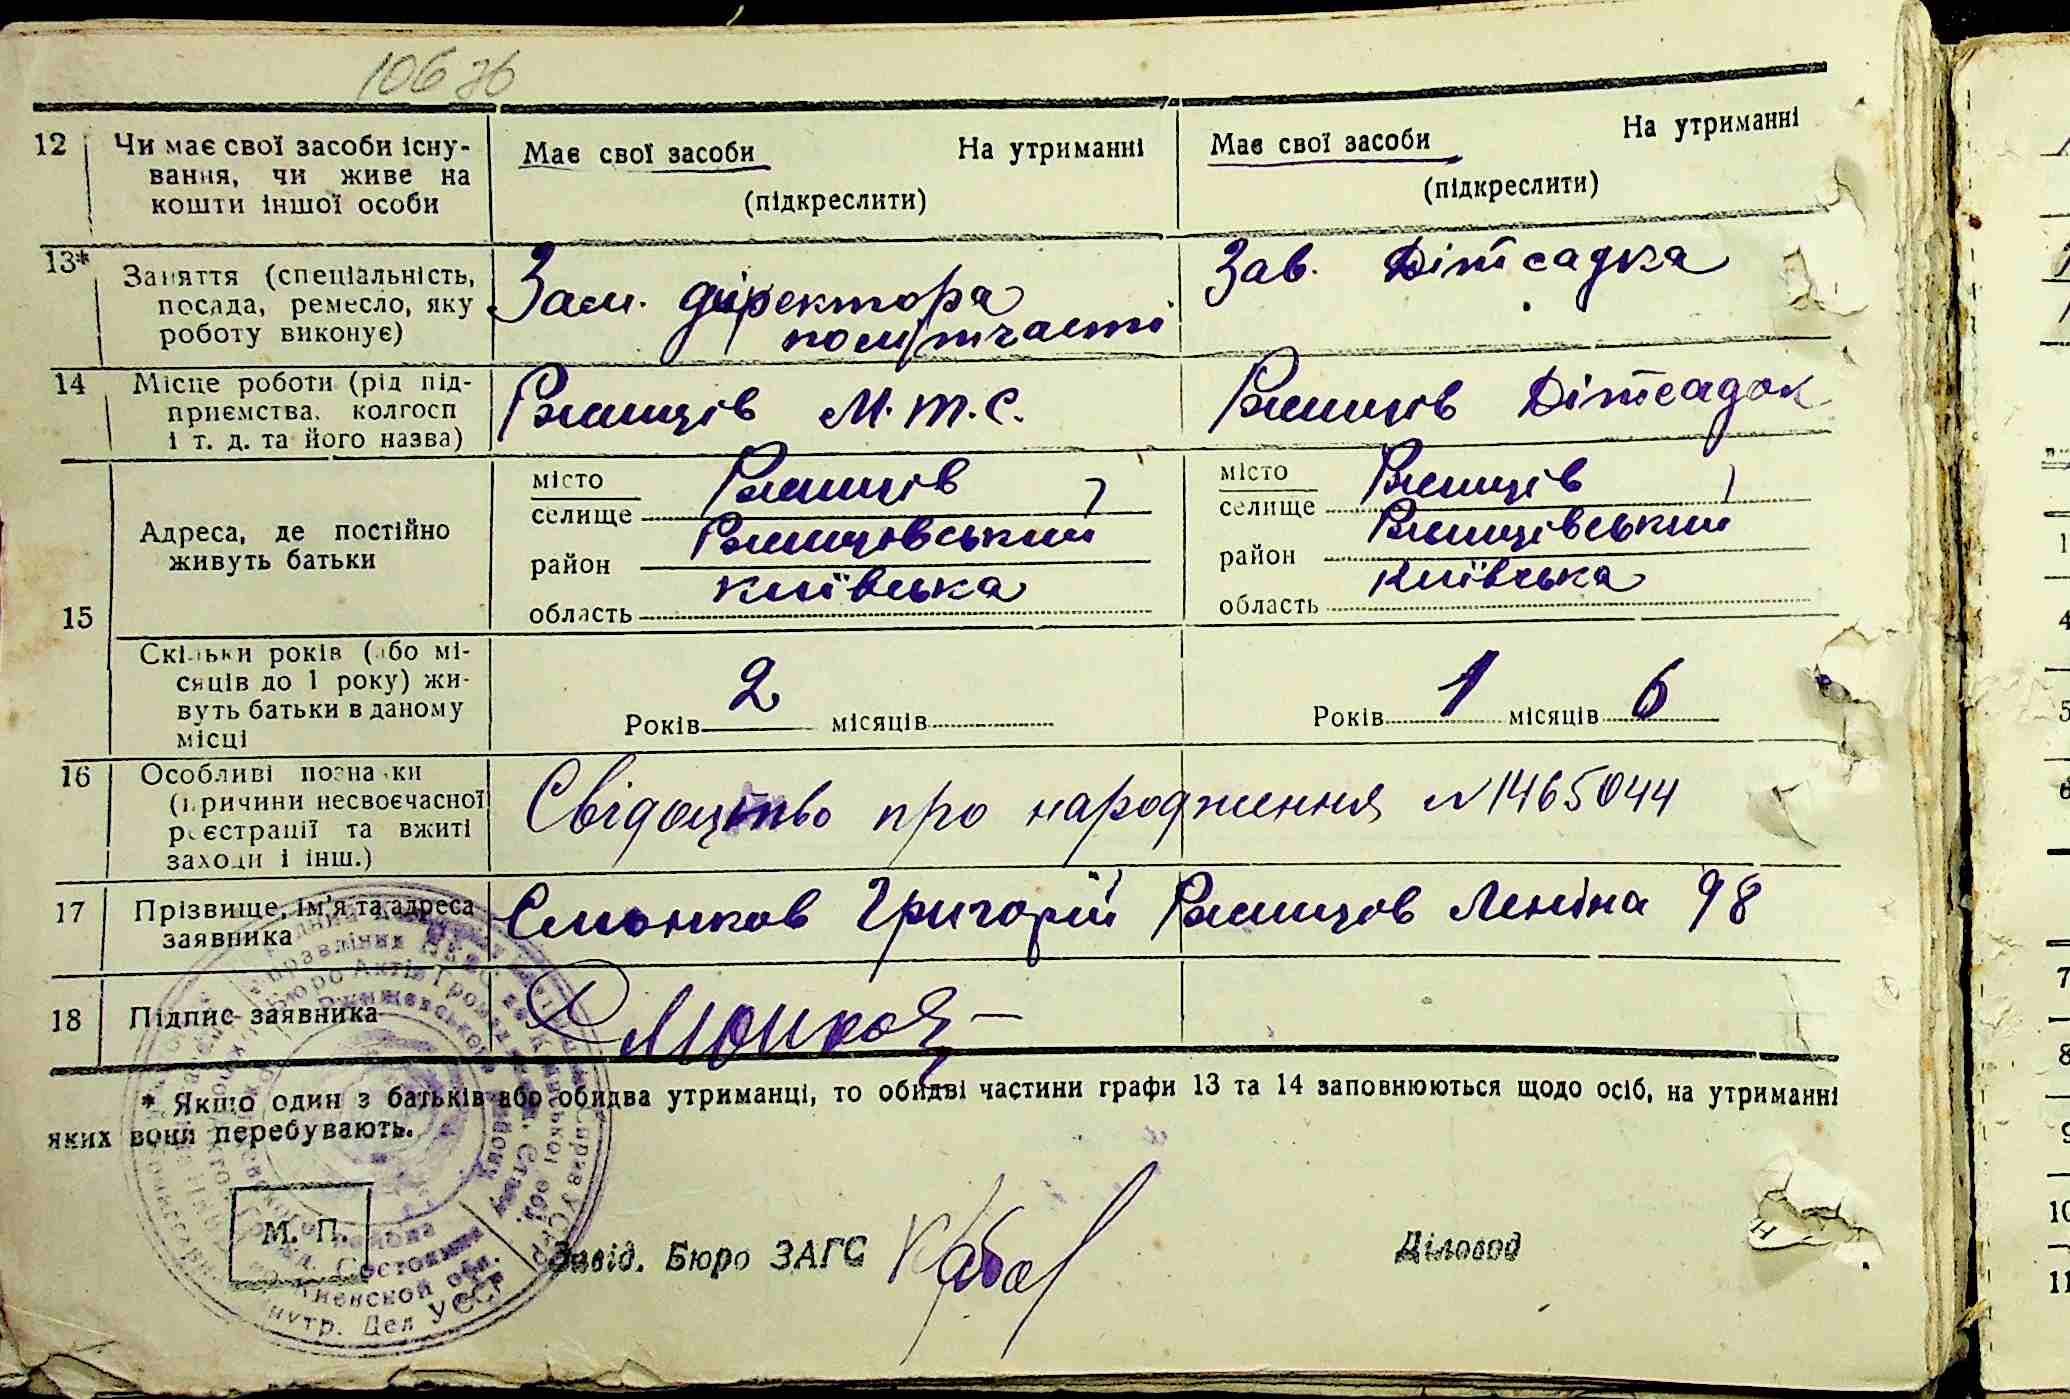 106 зб
12 Чи має свої засоби існу-
вання, чи живе на
кошти іншої особи
Має свої засоби На утриманні
(підкреслити)
Має свої засоби На утриманні
(підкреслити)
13* Заняття (спеціальність,
посада, ремесло, яку
роботу виконує)
Зам. директора
політчасті
Зав. Дітсадка
14 Місце роботи (рід під-
приємства, колгосп
і т. д. та його назва)
Ржищів М.Т.С.
Ржищів Дітсадок
15
Адреса, де постійно
живуть батьки
місто
селище Ржищів
район Ржищівський
область київська
місто
селище Ржищів
район Ржищівський
область київська
Скільки років (або мі-
сяців до 1 року) жи-
вуть батьки в даному
місці
Років 2 місяців
Років 1 місяців 6
16 Особливі познаки
(причини несвоєчасної
реєстрації та вжиті
заходи і інш.)
Свідоцтво про народження №1465044
17 Прізвище, ім'я та адреса
заявника
Смонков Григорій Ржищов Леніна 98
18 Підпис заявника
* Якщо один з батьків або обидва утриманці, то обидві частини графи 13 та 14 заповнюються щодо осіб, на утриманні
яких вони перебувають.
М. П.
Завід. Бюро ЗАГС
Діловод